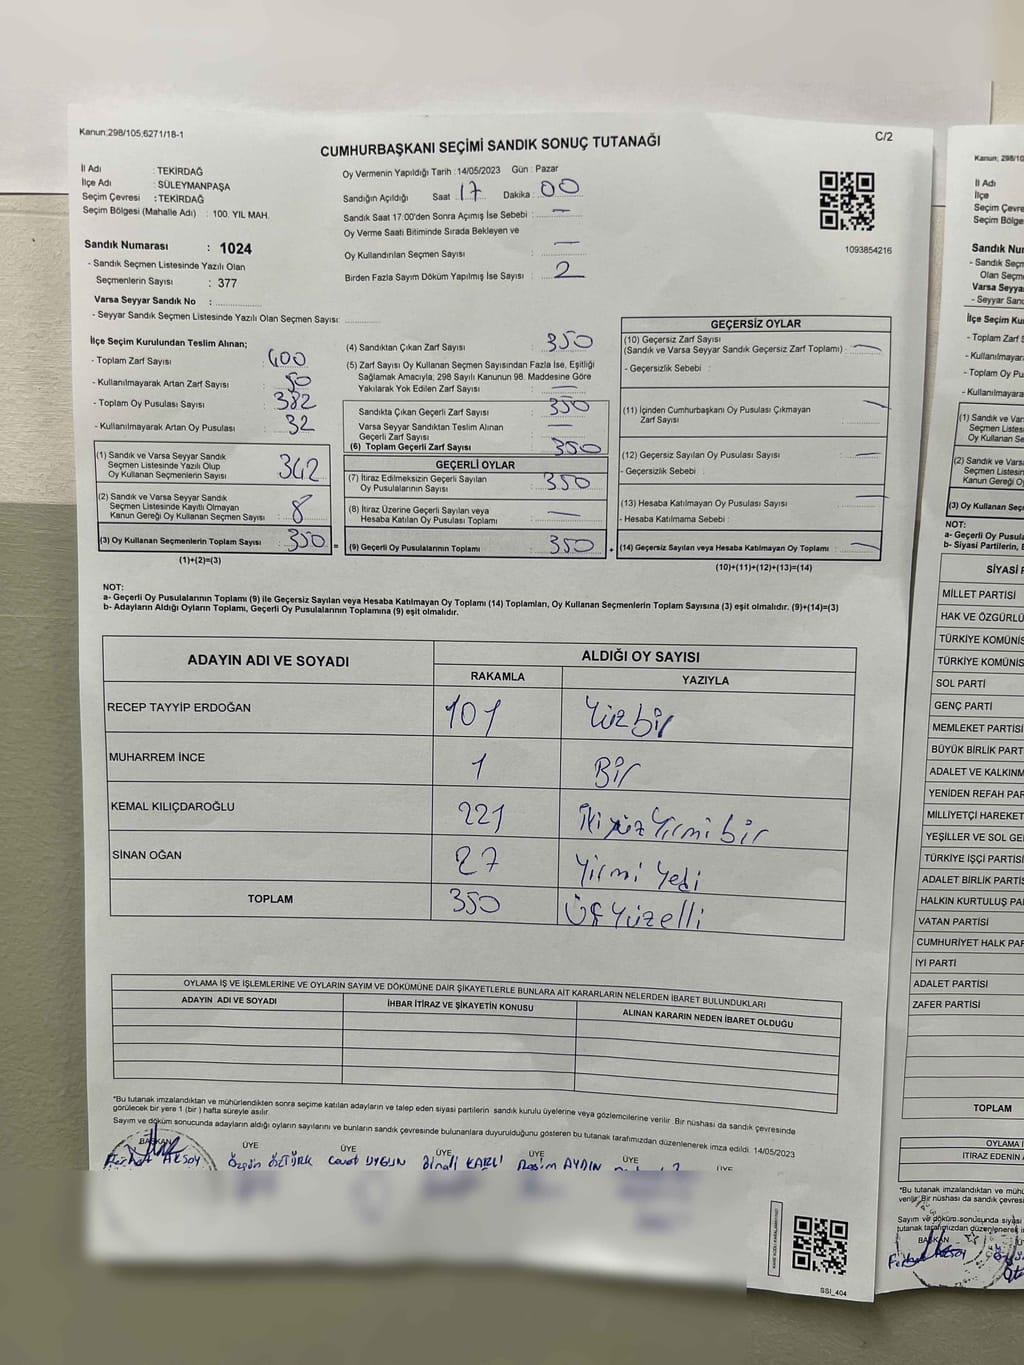 Kanun;298/105;6271/18-1
C/2
CUMHURBAŞKANI SEÇİMİ SANDIK SONUÇ TUTANAĞI
İl Adı : TEKİRDAĞ
İlçe Adı : SÜLEYMANPAŞA
Seçim Çevresi : TEKİRDAĞ
Seçim Bölgesi (Mahalle Adı) : 100. YIL MAH.
Sandık Numarası : 1024
- Sandık Seçmen Listesinde Yazılı Olan
Seçmenlerin Sayısı : 377
Varsa Seyyar Sandık No : ................
- Seyyar Sandık Seçmen Listesinde Yazılı Olan Seçmen Sayısı: .............
Oy Vermenin Yapıldığı Tarih : 14/05/2023 Gün : Pazar
Sandığın Açıldığı Saat 17 Dakika : 00
Sandık Saat 17:00'den Sonra Açımış İse Sebebi : —
Oy Verme Saati Bitiminde Sırada Bekleyen ve
Oy Kullandırılan Seçmen Sayısı : —
Birden Fazla Sayım Döküm Yapılmış İse Sayısı : 2
1093854216
İlçe Seçim Kurulundan Teslim Alınan;
- Toplam Zarf Sayısı : 400
- Kullanılmayarak Artan Zarf Sayısı : 50
- Toplam Oy Pusulası Sayısı : 382
- Kullanılmayarak Artan Oy Pusulası : 32
(1) Sandık ve Varsa Seyyar Sandık
Seçmen Listesinde Yazılı Olup
Oy Kullanan Seçmenlerin Sayısı : 342
(2) Sandık ve Varsa Seyyar Sandık
Seçmen Listesinde Kayıtlı Olmayan
Kanun Gereği Oy Kullanan Seçmen Sayısı : 8
(3) Oy Kullanan Seçmenlerin Toplam Sayısı : 350
(1)+(2)=(3)
(4) Sandıktan Çıkan Zarf Sayısı : 350
(5) Zarf Sayısı Oy Kullanan Seçmen Sayısından Fazla İse, Eşitliği
Sağlamak Amacıyla; 298 Sayılı Kanunun 98. Maddesine Göre
Yakılarak Yok Edilen Zarf Sayısı : —
Sandıkta Çıkan Geçerli Zarf Sayısı : 350
Varsa Seyyar Sandıktan Teslim Alınan
Geçerli Zarf Sayısı : —
(6) Toplam Geçerli Zarf Sayısı : 350
GEÇERLİ OYLAR
(7) İtiraz Edilmeksizin Geçerli Sayılan
Oy Pusulalarının Sayısı : 350
(8) İtiraz Üzerine Geçerli Sayılan veya
Hesaba Katılan Oy Pusulası Toplamı : —
= (9) Geçerli Oy Pusulalarının Toplamı : 350
GEÇERSİZ OYLAR
(10) Geçersiz Zarf Sayısı
(Sandık ve Varsa Seyyar Sandık Geçersiz Zarf Toplamı) : —
- Geçersizlik Sebebi :
(11) İçinden Cumhurbaşkanı Oy Pusulası Çıkmayan
Zarf Sayısı : —
(12) Geçersiz Sayılan Oy Pusulası Sayısı : —
- Geçersizlik Sebebi :
(13) Hesaba Katılmayan Oy Pusulası Sayısı : —
- Hesaba Katılmama Sebebi :
+ (14) Geçersiz Sayılan veya Hesaba Katılmayan Oy Toplamı : —
(10)+(11)+(12)+(13)=(14)
NOT:
a- Geçerli Oy Pusulalarının Toplamı (9) ile Geçersiz Sayılan veya Hesaba Katılmayan Oy Toplamı (14) Toplamları, Oy Kullanan Seçmenlerin Toplam Sayısına (3) eşit olmalıdır. (9)+(14)=(3)
b- Adayların Aldığı Oyların Toplamı, Geçerli Oy Pusulalarının Toplamına (9) eşit olmalıdır.
ADAYIN ADI VE SOYADI
ALDIĞI OY SAYISI
RAKAMLA YAZIYLA
RECEP TAYYİP ERDOĞAN 101 Yüzbir
MUHARREM İNCE 1 Bir
KEMAL KILIÇDAROĞLU 221 İkiyüzYirmibir
SİNAN OĞAN 27 Yirmi Yedi
TOPLAM 350 Üçyüzelli
OYLAMA İŞ VE İŞLEMLERİNE VE OYLARIN SAYIM VE DÖKÜMÜNE DAİR ŞİKAYETLERLE BUNLARA AİT KARARLARIN NELERDEN İBARET BULUNDUKLARI
ADAYIN ADI VE SOYADI İHBAR İTİRAZ VE ŞİKAYETİN KONUSU ALINAN KARARIN NEDEN İBARET OLDUĞU
*Bu tutanak imzalandıktan ve mühürlendikten sonra seçime katılan adayların ve talep eden siyasi partilerin sandık kurulu üyelerine veya gözlemcilerine verilir. Bir nüshası da sandık çevresinde
görülecek bir yere 1 (bir ) hafta süreyle asılır.
Sayım ve döküm sonucunda adayların aldığı oyların sayılarını ve bunların sandık çevresinde bulunanlara duyurulduğunu gösteren bu tutanak tarafımızdan düzenlenerek imza edildi. 14/05/2023
BAŞKAN ÜYE ÜYE ÜYE ÜYE ÜYE ÜYE
AKSOY Özgün ÖZTÜRK Cevat UYGUN Binali KARLI Rasim AYDIN
SSİ_404
Kanun; 298/10
İl Adı
İlçe
Seçim Çevre
Seçim Bölge
Sandık Nu
- Sandık Seçm
Olan Seçm
Varsa Seyya
- Seyyar Sand
İlçe Seçim Ku
- Toplam Zarf S
- Kullanılmayara
- Toplam Oy Pu
- Kullanılmayarak
(1) Sandık ve Var
Seçmen Listesin
Oy Kullanan Se
(2) Sandık ve Varsa
Seçmen Listesin
Kanun Gereği Oy K
(3) Oy Kullanan Seç
NOT:
a- Geçerli Oy Pusula
b- Siyasi Partilerin, B
SİYASİ P
MİLLET PARTİSİ
HAK VE ÖZGÜRLÜ
TÜRKİYE KOMÜNİS
TÜRKİYE KOMÜNİS
SOL PARTİ
GENÇ PARTİ
MEMLEKET PARTİSİ
BÜYÜK BİRLİK PART
ADALET VE KALKINM
YENİDEN REFAH PAR
MİLLİYETÇİ HAREKET
YEŞİLLER VE SOL GE
TÜRKİYE İŞÇİ PARTİSİ
ADALET BİRLİK PARTİS
HALKIN KURTULUŞ PA
VATAN PARTİSİ
CUMHURİYET HALK PAR
İYİ PARTİ
ADALET PARTİSİ
ZAFER PARTİSİ
TOPLAM
OYLAMA İ
İTİRAZ EDENİN A
*Bu tutanak imzalandıktan ve mühü
verilir. Bir nüshası da sandık çevresi
Sayım ve döküm sonucunda siyasi
tutanak tarafımızdan düzenlenerek im
BAŞKAN